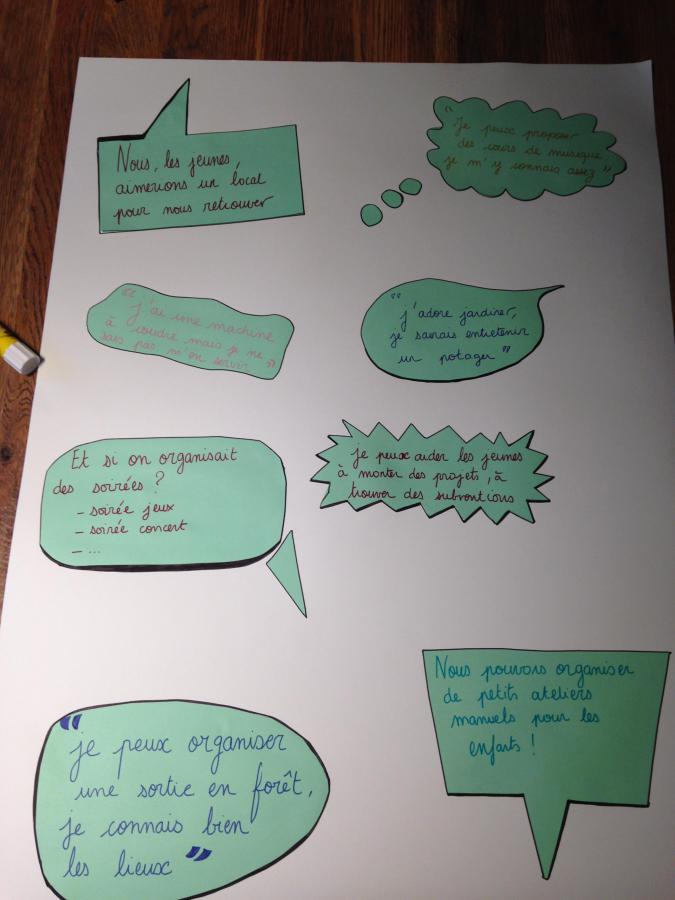 Nous, les jeunes,
aimerions un local
pour nous retrouver
" Je peux proposer
des cours de musique
je m'y connais assez "
" j'ai une machine
à coudre mais je ne
sais pas m'en servir "
" j'adore jardiner,
je saurais entretenir
un potager "
Et si on organisait
des soirées ?
- soirée jeux
- soirée concert
- ...
je peux aider les jeunes
à monter des projets, à
trouver des subventions
Nous pouvons organiser
de petits ateliers
manuels pour les
enfants !
" je peux organiser
une sortie en forêt,
je connais bien
les lieux "